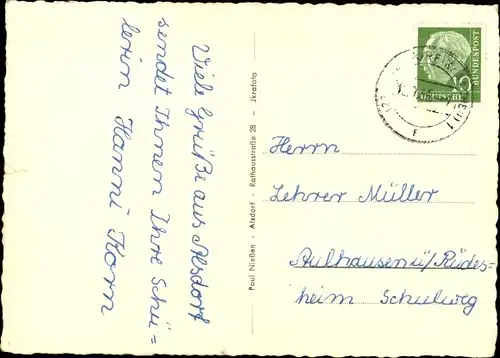 Viele Grüße aus Alsdorf
sendet Ihnen Ihre Schü=
lerin Hanni Korn
Paul Nießen · Alsdorf · Rathausstraße 28 – Jkrafoto
10
DEUTSCHE
BUNDESPOST
Herrn
Lehrer Müller
Aulhausen ü/Rüdes-
heim Schulweg